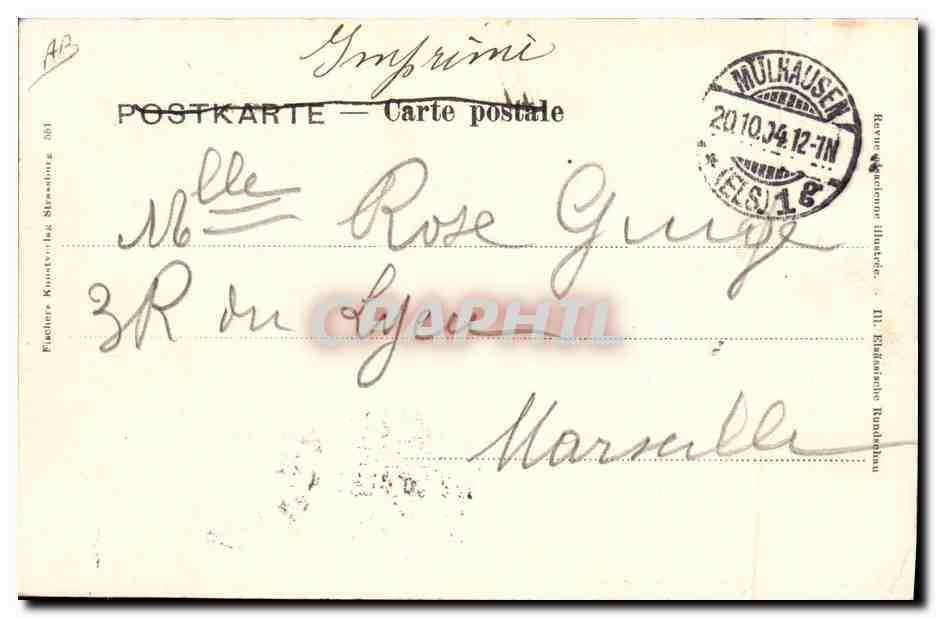 AB
Imprimé
POSTKARTE — Carte postale
MÜLHAUSEN
20.10.04.12-1N
* (ELS) 1 g *
Mlle Rose
3 R du Lycée
Marseille
Fischers Kunstverlag Strassburg 551
Revue alsacienne illustrée. - Ill. Elsässische Rundschau
CPAPHIL